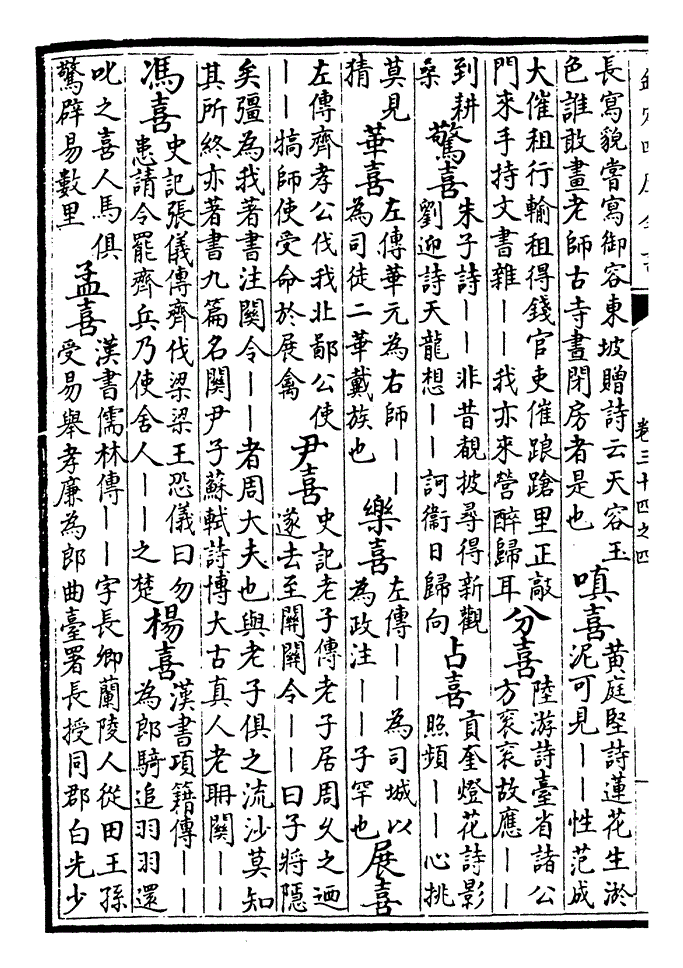 欽定四庫全書
卷三十四之四
長寫貌嘗寫御容東坡贈詩云天容玉
色誰敢畫老師古寺晝閉房者是也
嗔喜
黄庭堅詩蓮花生淤
泥可見——性范成
大催租行輸租得錢官吏催踉蹌里正敲
門來手持文書雜——我亦來營醉歸耳
分喜
陸游詩臺省諸公
方衮衮故應——
到耕
桑
驚喜
朱子詩——非昔覩披尋得新觀
劉迎詩天龍想——訶衞日歸向
占喜
貢奎燈花詩影
照頻——心挑
莫見
猜
華喜
左傳華元為右師——
為司徒二華戴族也
樂喜
左傳——為司城以
為政注——子罕也
展喜
左傳齊孝公伐我北鄙公使
——犒師使受命於展禽
尹喜
史記老子傳老子居周乆之迺
遂去至關關令——曰子將隱
矣彊為我著書注關令——者周大夫也與老子俱之流沙莫知
其所終亦著書九篇名關尹子蘇軾詩博大古真人老聃關——
馮喜
史記張儀傳齊伐梁梁王恐儀曰勿
患請令罷齊兵乃使舍人——之楚
楊喜
漢書項籍傳——
為郎騎追羽羽還
叱之喜人馬俱
驚辟易數里
孟喜
漢書儒林傳——字長卿蘭陵人從田王孫
受易舉孝廉為郎曲臺署長授同郡白光少